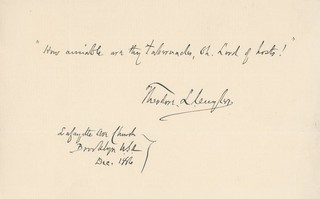 "How amiable are thy tabernacles, Oh. Lord of hosts!"
Theodore L. Cuyler
Lafayette Ave Church
Brooklyn USA
Dec. 1886